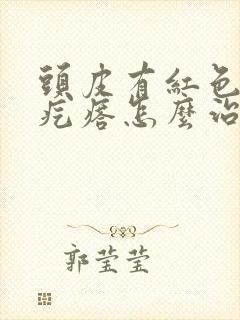 頭皮有紅色
疙瘩怎麼治
郭莹莹